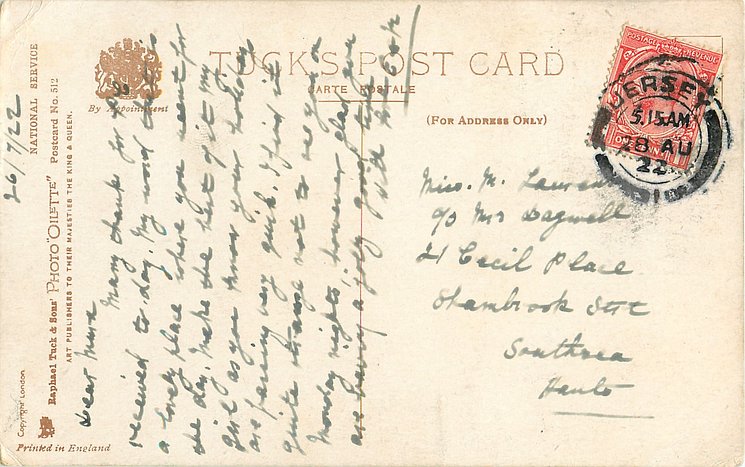 TUCK'S POST CARD
CARTE POSTALE
(FOR ADDRESS ONLY)
By Appointment
NATIONAL SERVICE
Postcard No. 512
Raphael Tuck & Sons' PHOTO "OILETTE"
ART PUBLISHERS TO THEIR MAJESTIES THE KING & QUEEN.
Copyright London
Printed in England
POSTAGE REVENUE
ONE PENNY
JERSEY
5.15AM
28 AU
22
26/7/22
Dear
Many thanks for
received to-day. My word
a lovely place where you went for
the day. Make the best of it my
girl as you know your holidays
are passing very quick. I find it
quite strange not to see you on
Monday nights however glad you
are having a jolly good time
Miss. M.
c/o Mrs Bagwell
21 Cecil Place
Shambrook Stret
Southsea
Hants